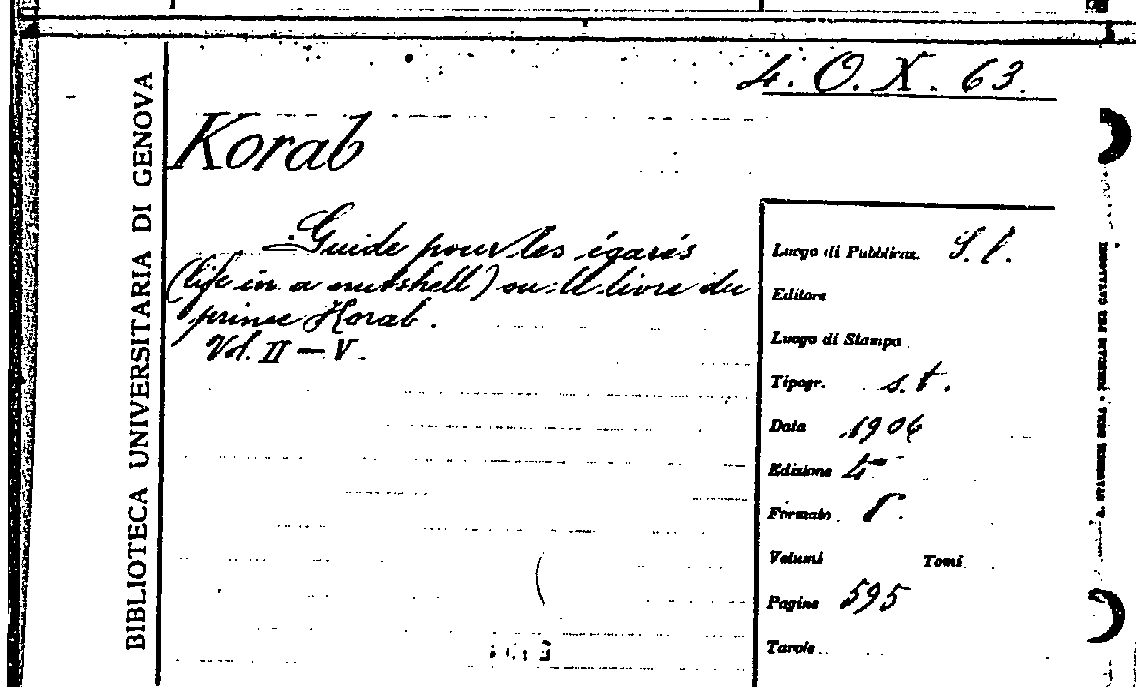 4. O. X. 63.
BIBLIOTECA UNIVERSITARIA DI GENOVA
Korab
Guide pour les égarés
(life in a nutshell) ou: le livre du
prince Korab.
Vol. II — V.
Luogo di Pubblicaz. S. l.
Editore
Luogo di Stampa
Tipogr. s. t.
Data 1906
Edizione
Formato 8.
Volumi Tomi
Pagine 595
Tavole